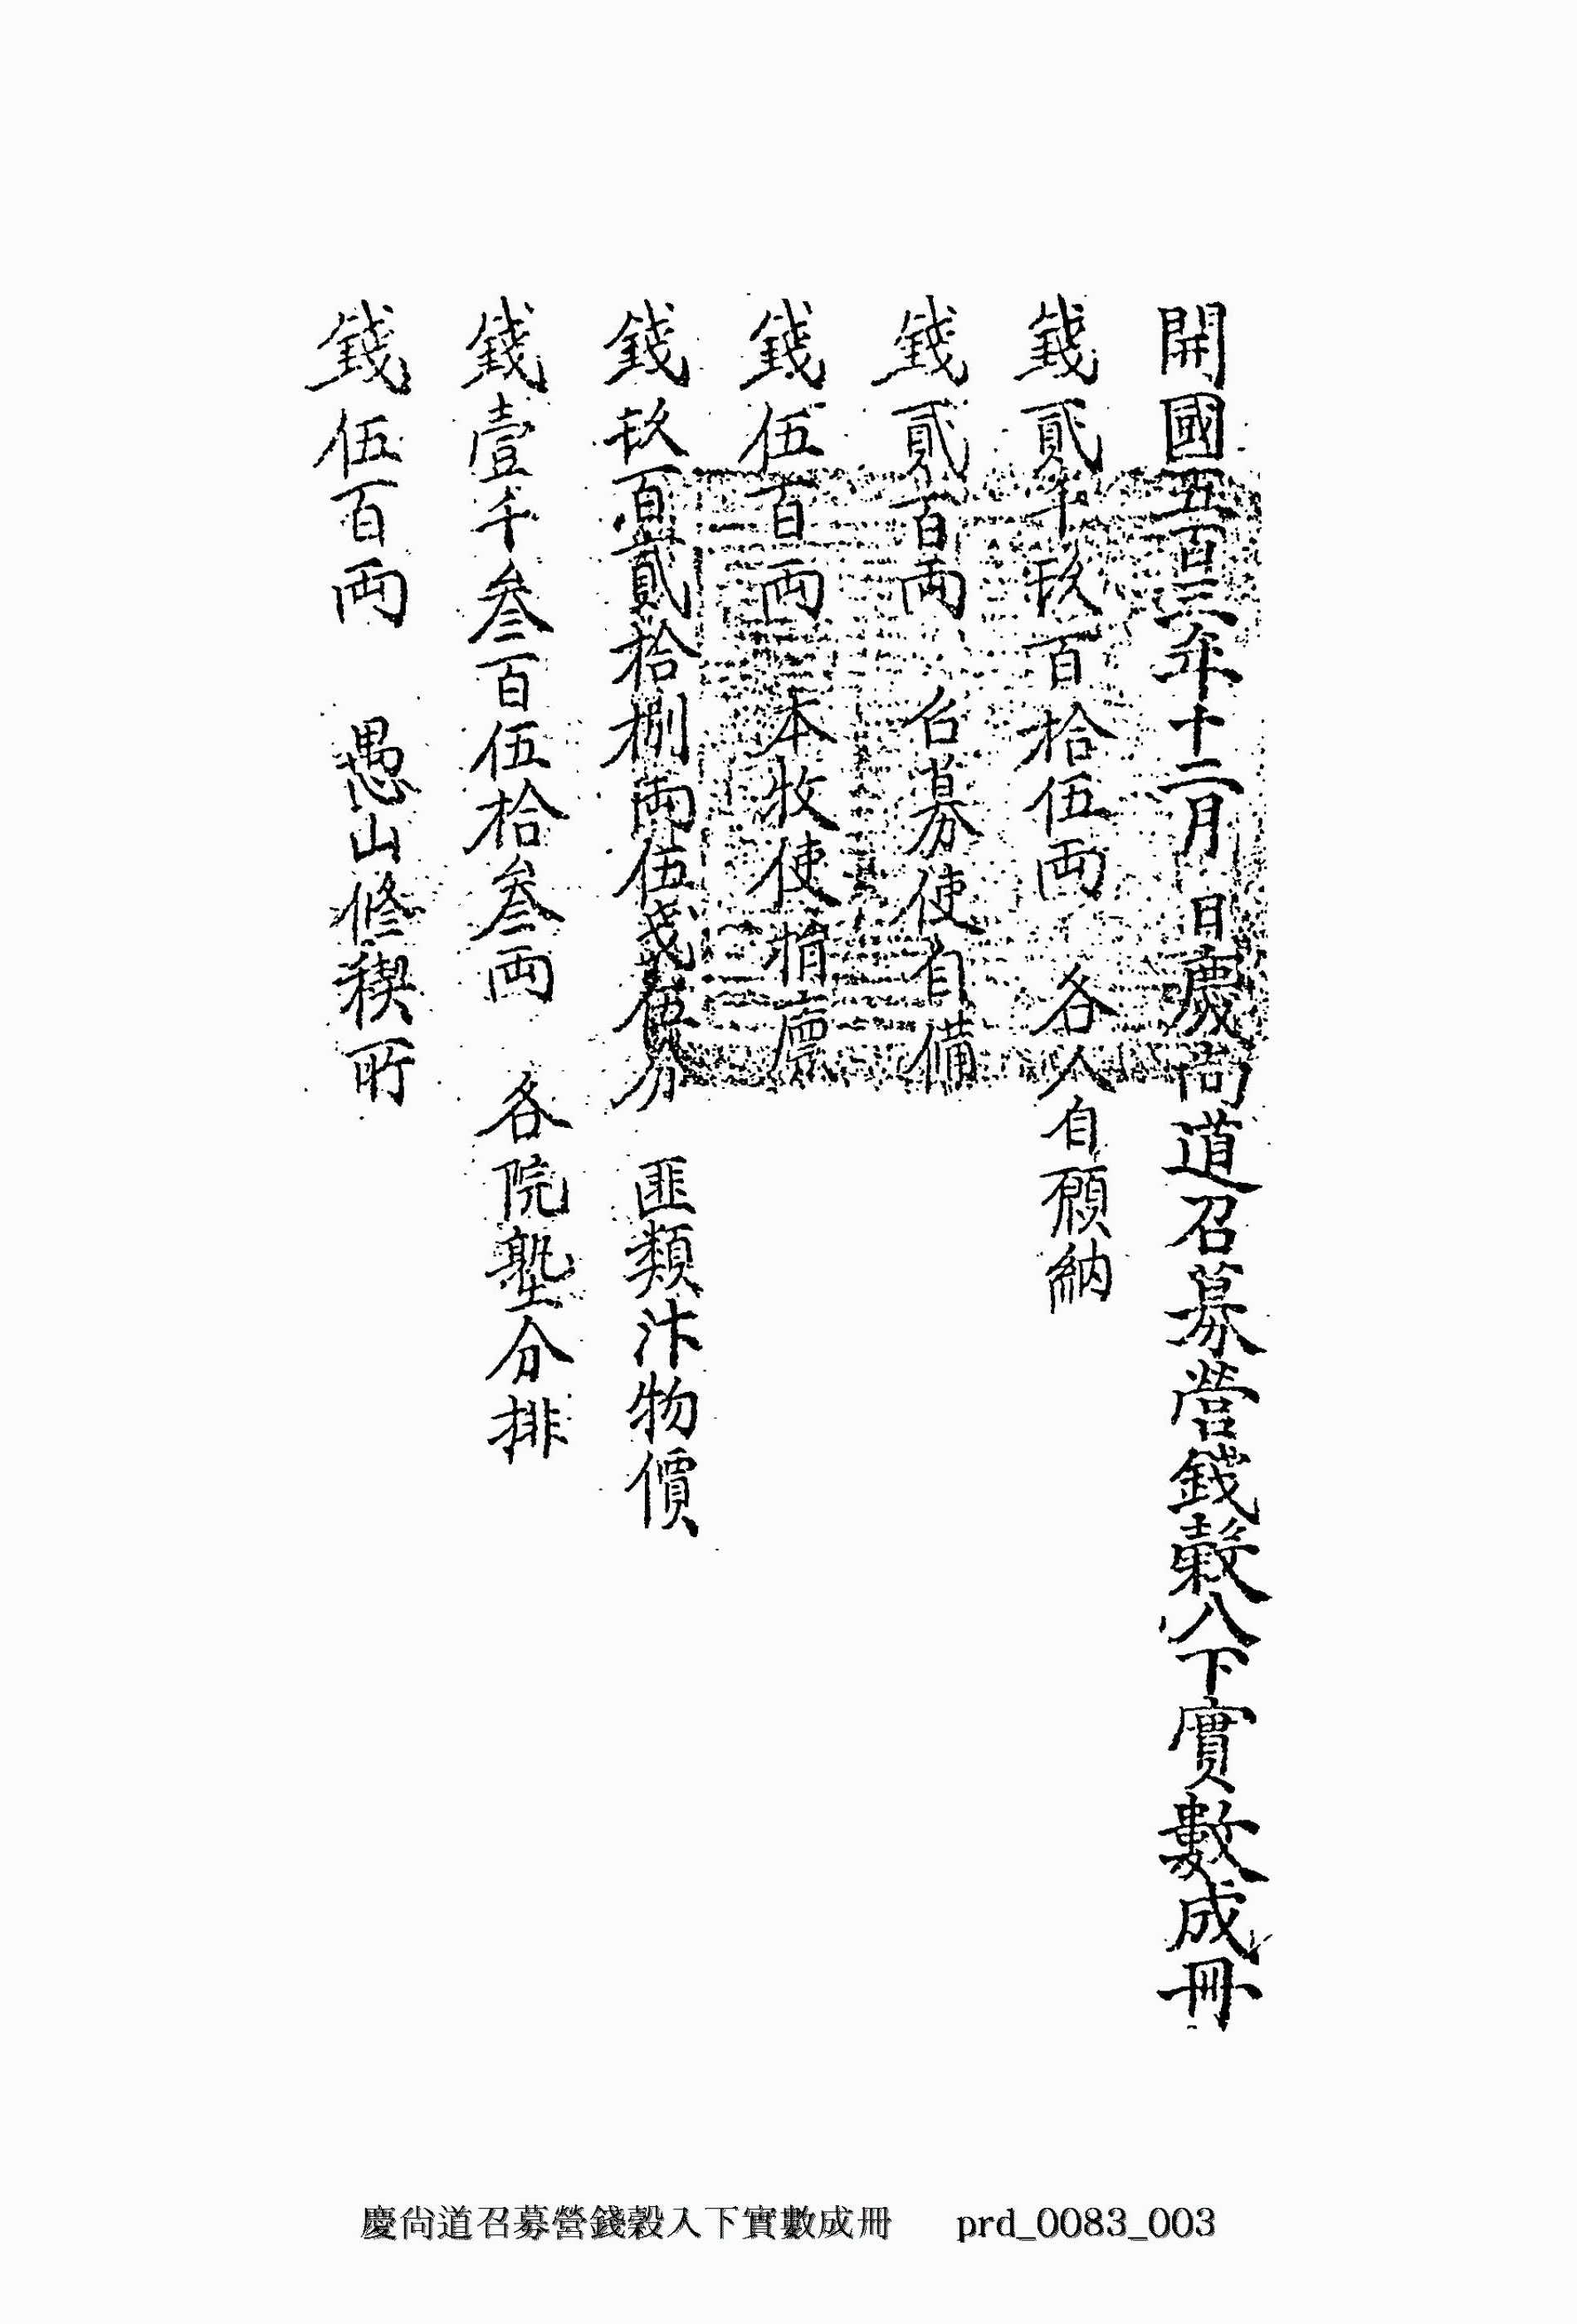 開國五百三年十二月 日慶尙道召募營錢穀入下實數成冊
錢貳千玖百拾伍兩 各人自願納
錢貳百兩 召募使自備
錢伍百兩 本牧使捐廩
錢玖百貳拾捌兩伍戔伍分 匪類汴物價
錢壹千叁百伍拾叁兩 各院塾分排
錢伍百兩 愚山修稧所
慶尙道召募營錢穀入下實數成冊 prd_0083_003